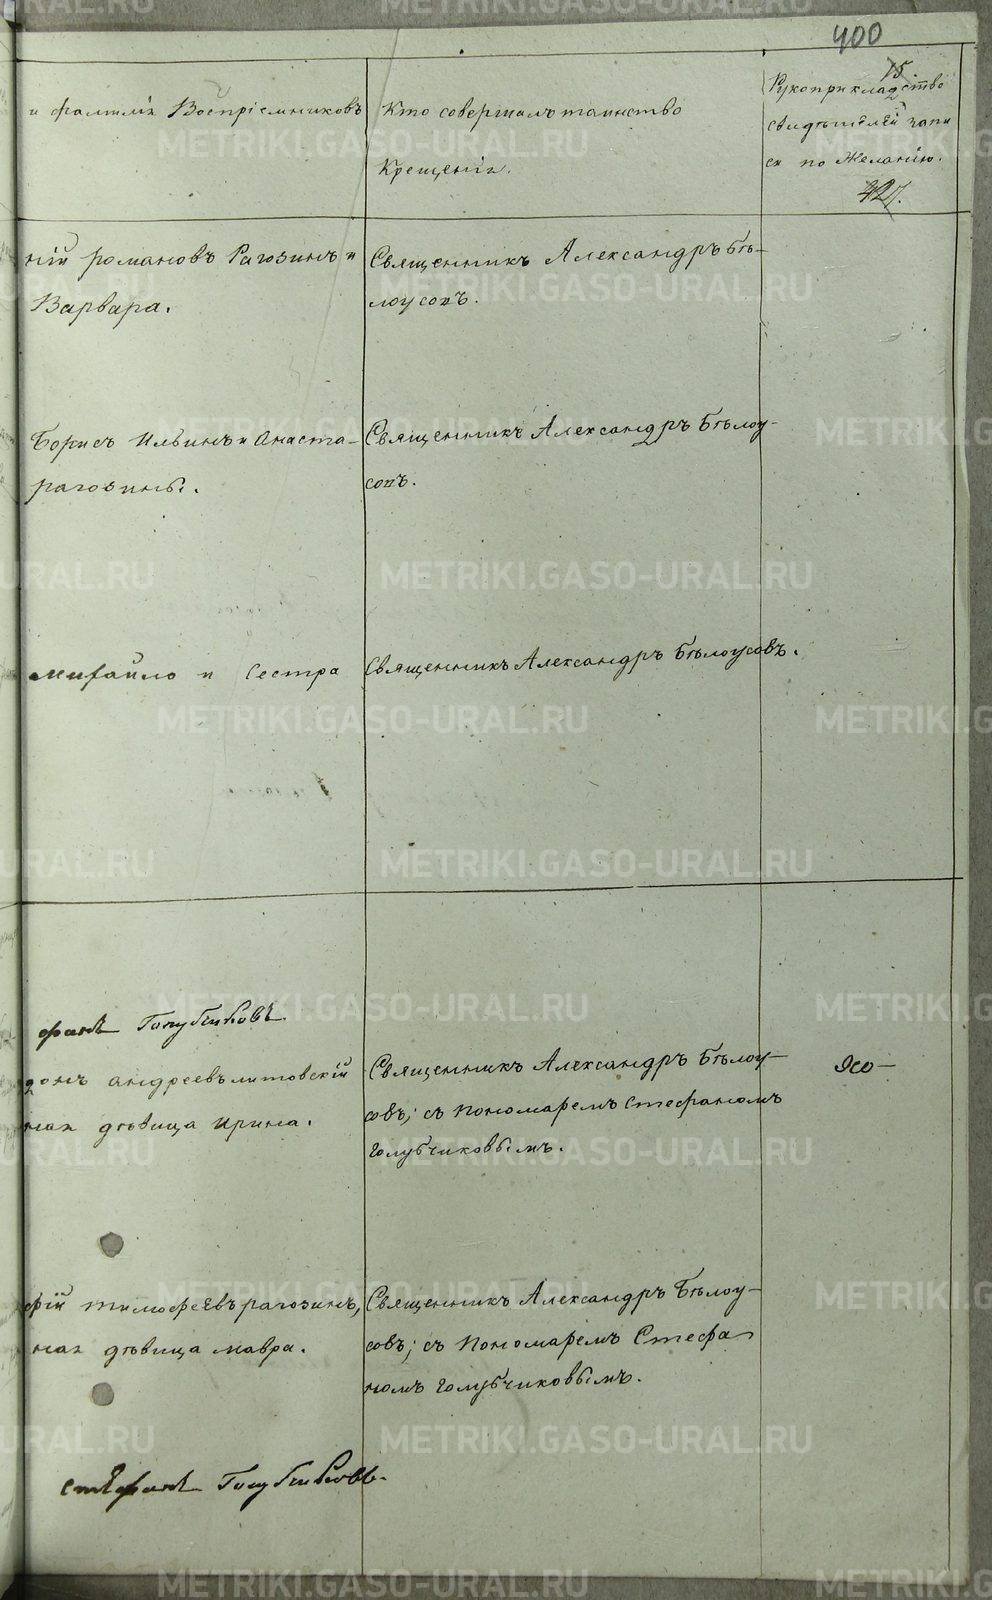 400
15
и фамилія Воспріемниковъ
Кто совершалъ таинство
Крещенія.
Рукоприкладство
свидѣтелей запи
си по желанію.
427.
ній романовъ Рагозинъ и
Варвара.
Священникъ Александръ Бѣ-
лоусовъ.
Борисъ Ильинъ и Анаста-
рагозины.
Священникъ Александръ Бѣлоу-
совъ.
михайло и Сестра
Священникъ Александръ Бѣлоусовъ.
фанъ Голубчиковъ
донъ андреевъ литовскій
ная дѣвица ирина.
Священникъ Александръ Бѣлоу-
совъ; съ пономаремъ стефаномъ
голубчиковымъ.
фій тимофеевъ рагозинъ,
ная дѣвица мавра.
Священникъ Александръ Бѣлоу-
совъ; съ пономаремъ Стефа
номъ голубчиковымъ.
стефанъ Голубчиковъ.
METRIKI.GASO-URAL.RU